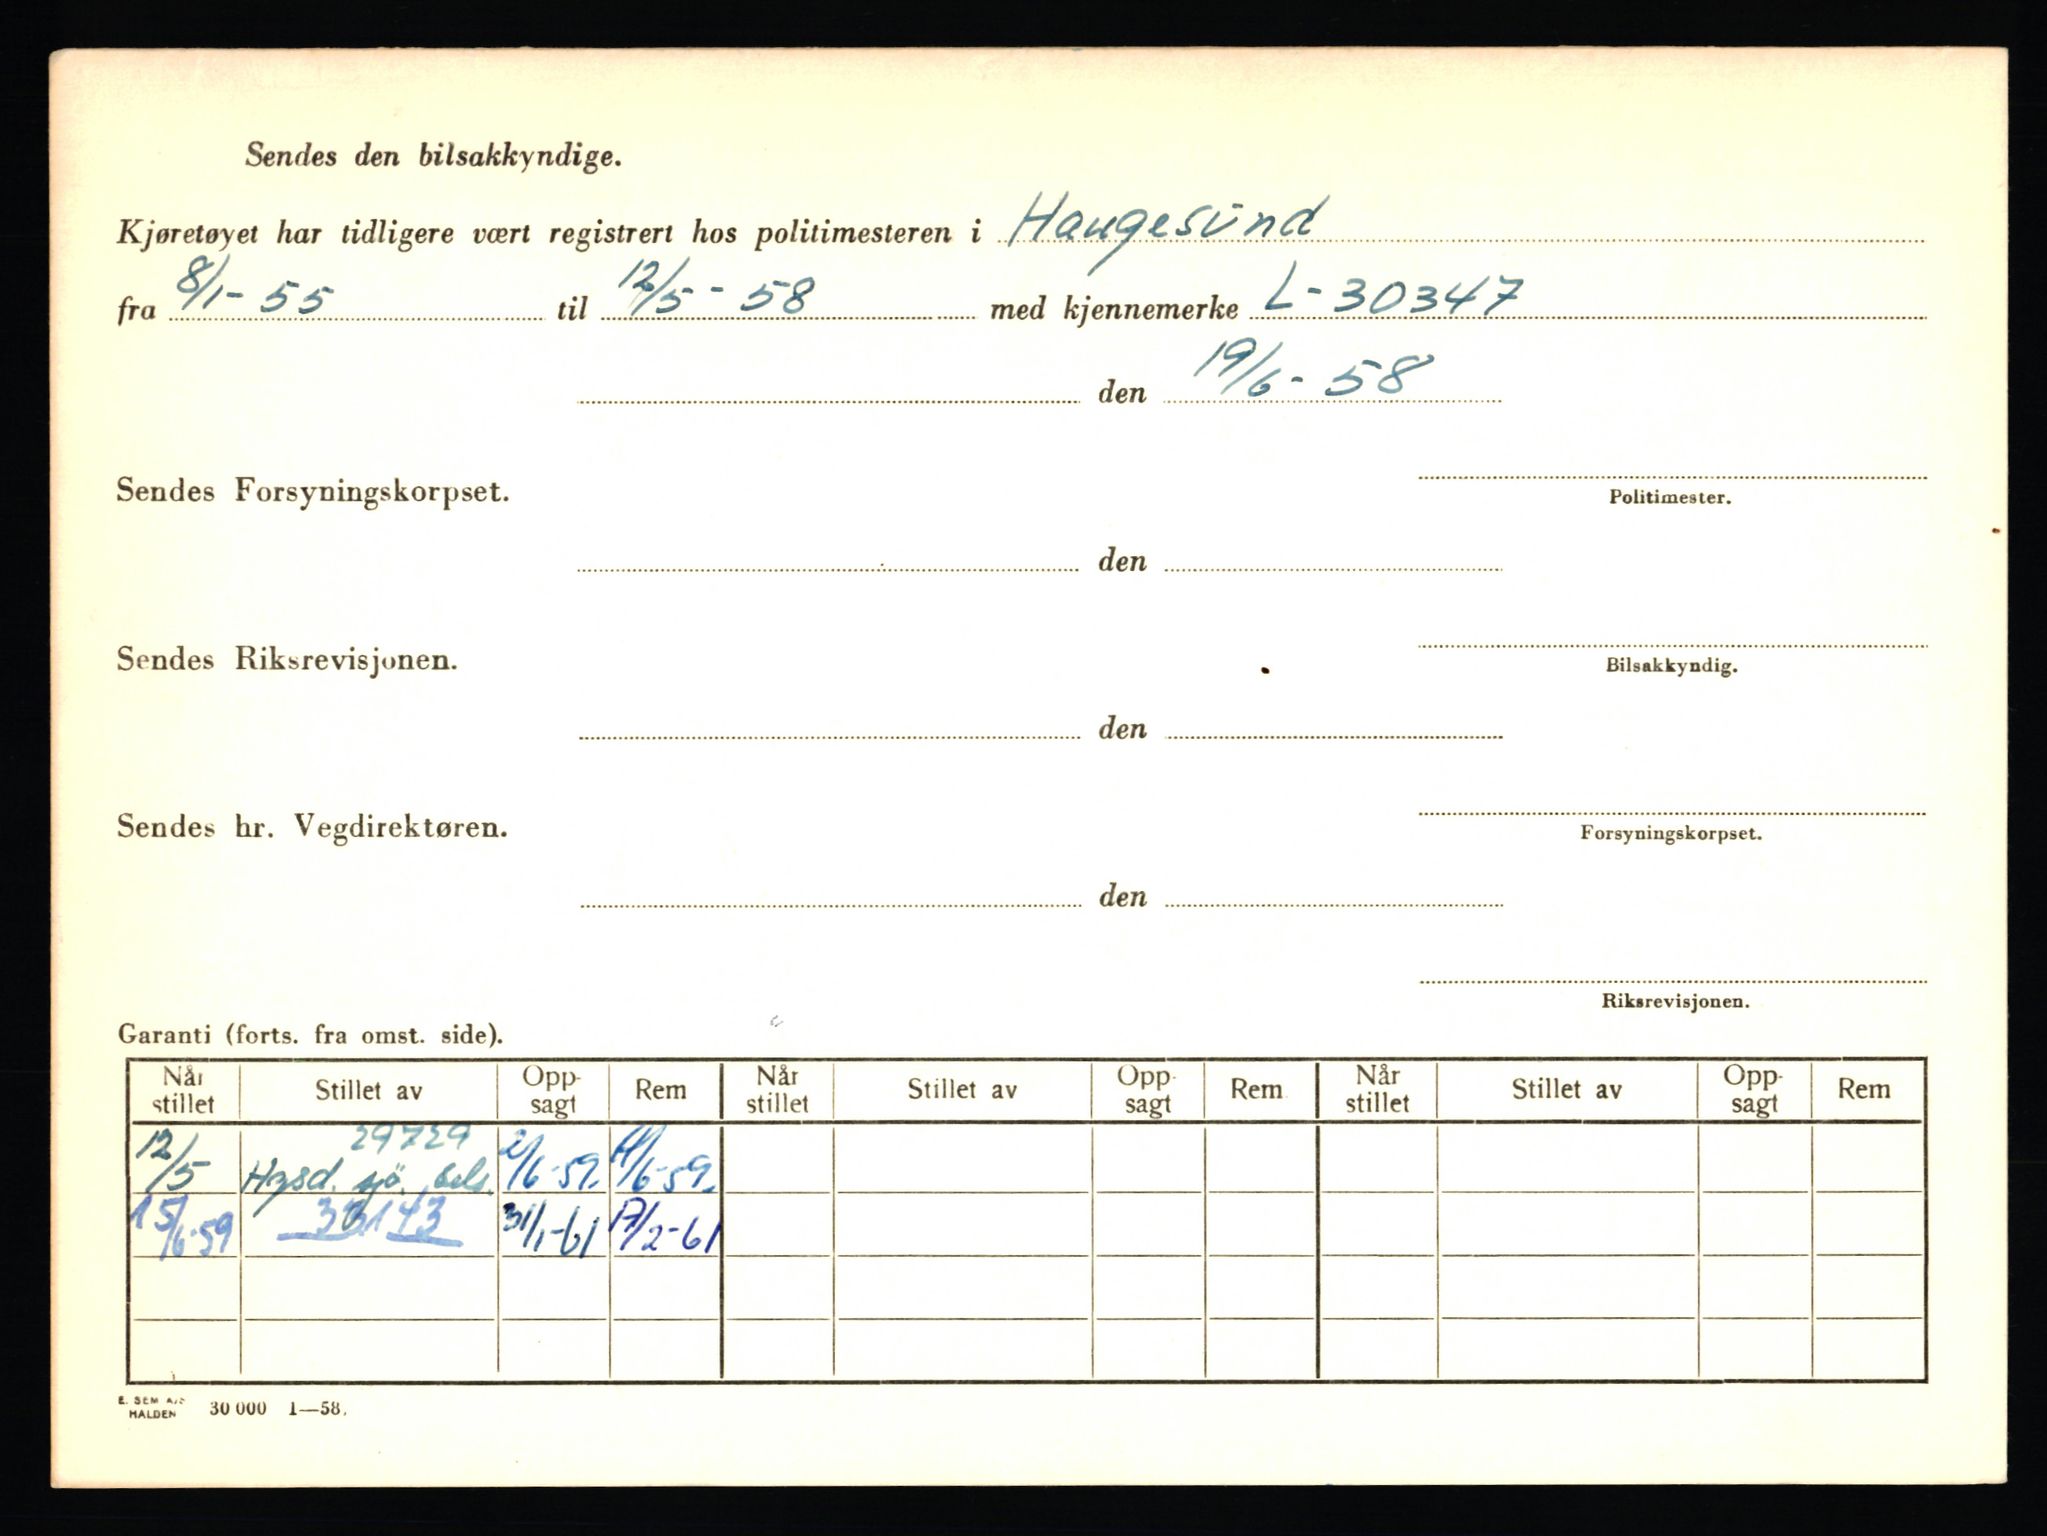 Sendes den bilsakkyndige.
Kjøretøyet har tidligere vært registrert hos politimesteren i Haugesund
fra 8/1-55 til 12/5-58 med kjennemerke L-30347
den 19/6-58
Sendes Forsyningskorpset.
Politimester.
den
Sendes Riksrevisjonen.
Bilsakkyndig.
den
Sendes hr. Vegdirektøren.
Forsyningskorpset.
den
Riksrevisjonen.
Garanti (forts. fra omst. side).
Når stillet Stillet av Opp-sagt Rem Når stillet Stillet av Opp-sagt Rem Når stillet Stillet av Opp-sagt Rem
29729
12/5 Hgsd. sjø. sels. 2/6-59. 11/6-59.
15/6-59 33143 31/1-61 17/2-61
E. SEM A/S
HALDEN 30 000 1—58.